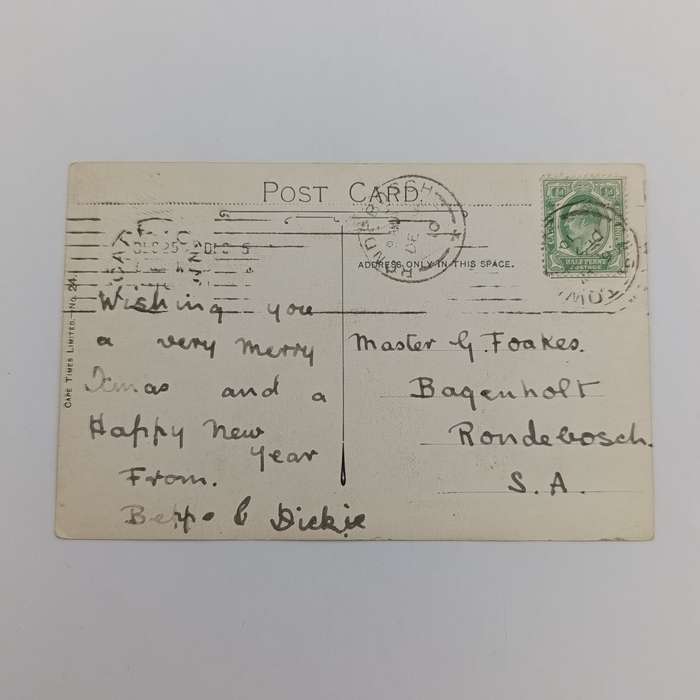 POST CARD.
DEC 25
DEC 5
RONDEBOSCH
ADDRESS ONLY IN THIS SPACE.
HALF PENNY
POSTAGE
CAPE TIMES LIMITED.—No. 24
Wishing you
a very merry
Xmas and a
Happy New
Year
From.
& Dickie
Master G. Foakes.
Bagenholt
Rondebosch.
S. A.